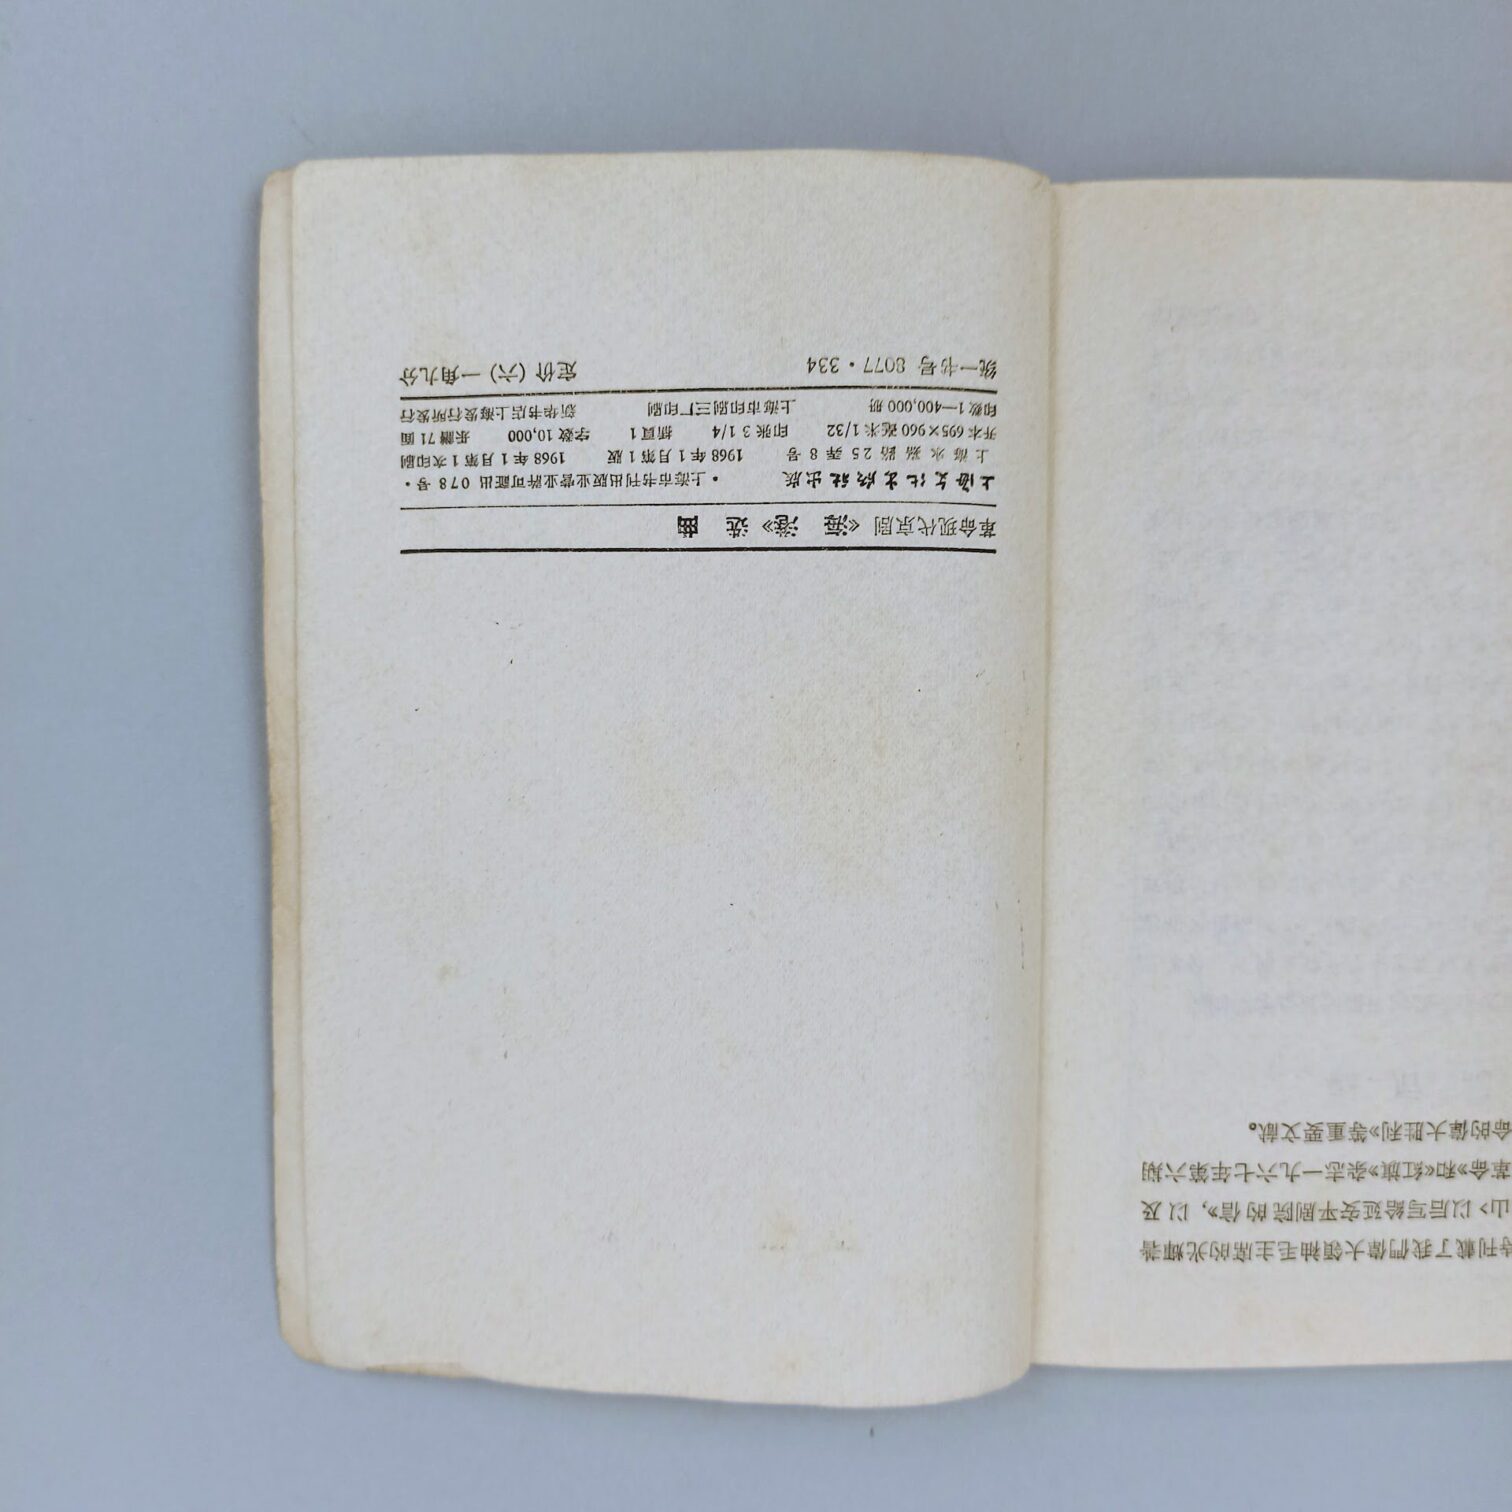 革命现代京剧《海 港》选 曲
上海文化出版社出版 ·上海市书刊出版业营业許可証出 078 号·
上海永嘉路25弄8号 1968年1月第1版 1968年1月第1次印刷
开本 695×960 毫米 1/32 印张 3 1/4 插頁 1 字数 10,000 乐譜 71 面
印数 1—400,000 册 上海市印刷三厂印刷 新华书店上海发行所发行
统一书号 8077·334 定价(六)一角九分
刊載了我們偉大領袖毛主席的光輝著
山》以后写給延安平剧院的信》，以及
革命》和《紅旗》杂志一九六七年第六期
命的偉大胜利》等重要文献。